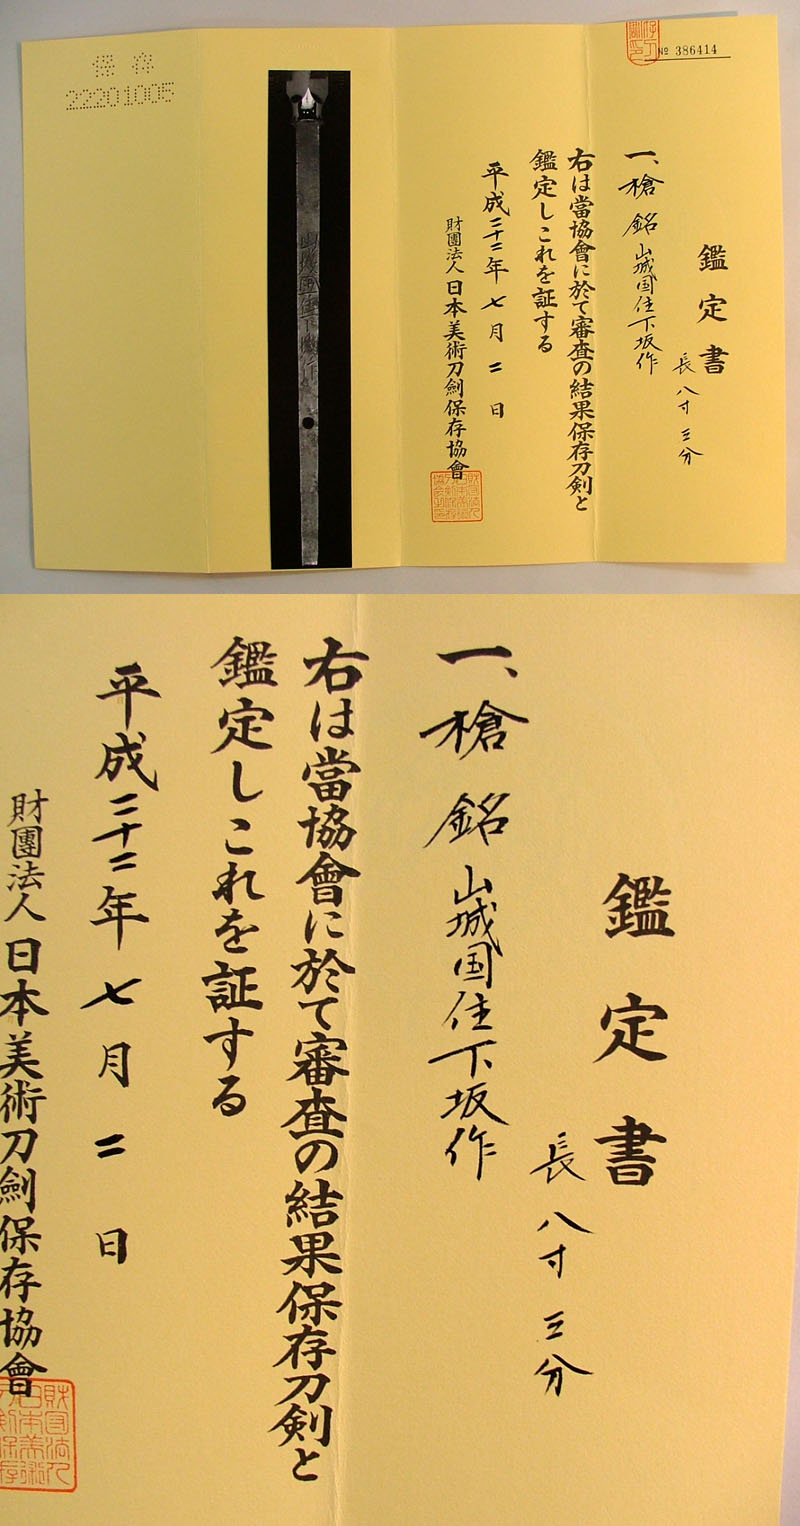 № 386414
鑑定書
長八寸三分
一、槍 銘 山城国住下坂作
右は當協會に於て審査の結果保存刀剣と
鑑定しこれを証する
平成二十二年七月二日
財團法人日本美術刀劍保存協會
山城國住下坂作
保存
22201005
鑑定書
長八寸三分
一、槍 銘 山城国住下坂作
右は當協會に於て審査の結果保存刀剣と
鑑定しこれを証する
平成二十二年七月二日
財團法人日本美術刀劍保存協會